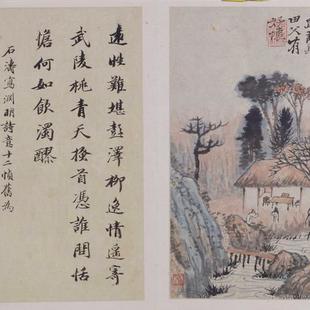 田父有
好懷
遠性難堪彭澤柳逸情遥寄
武陵桃青天搔首憑誰問恬
憺何如飲濁醪
石濤寫淵明詩意十二幀舊為